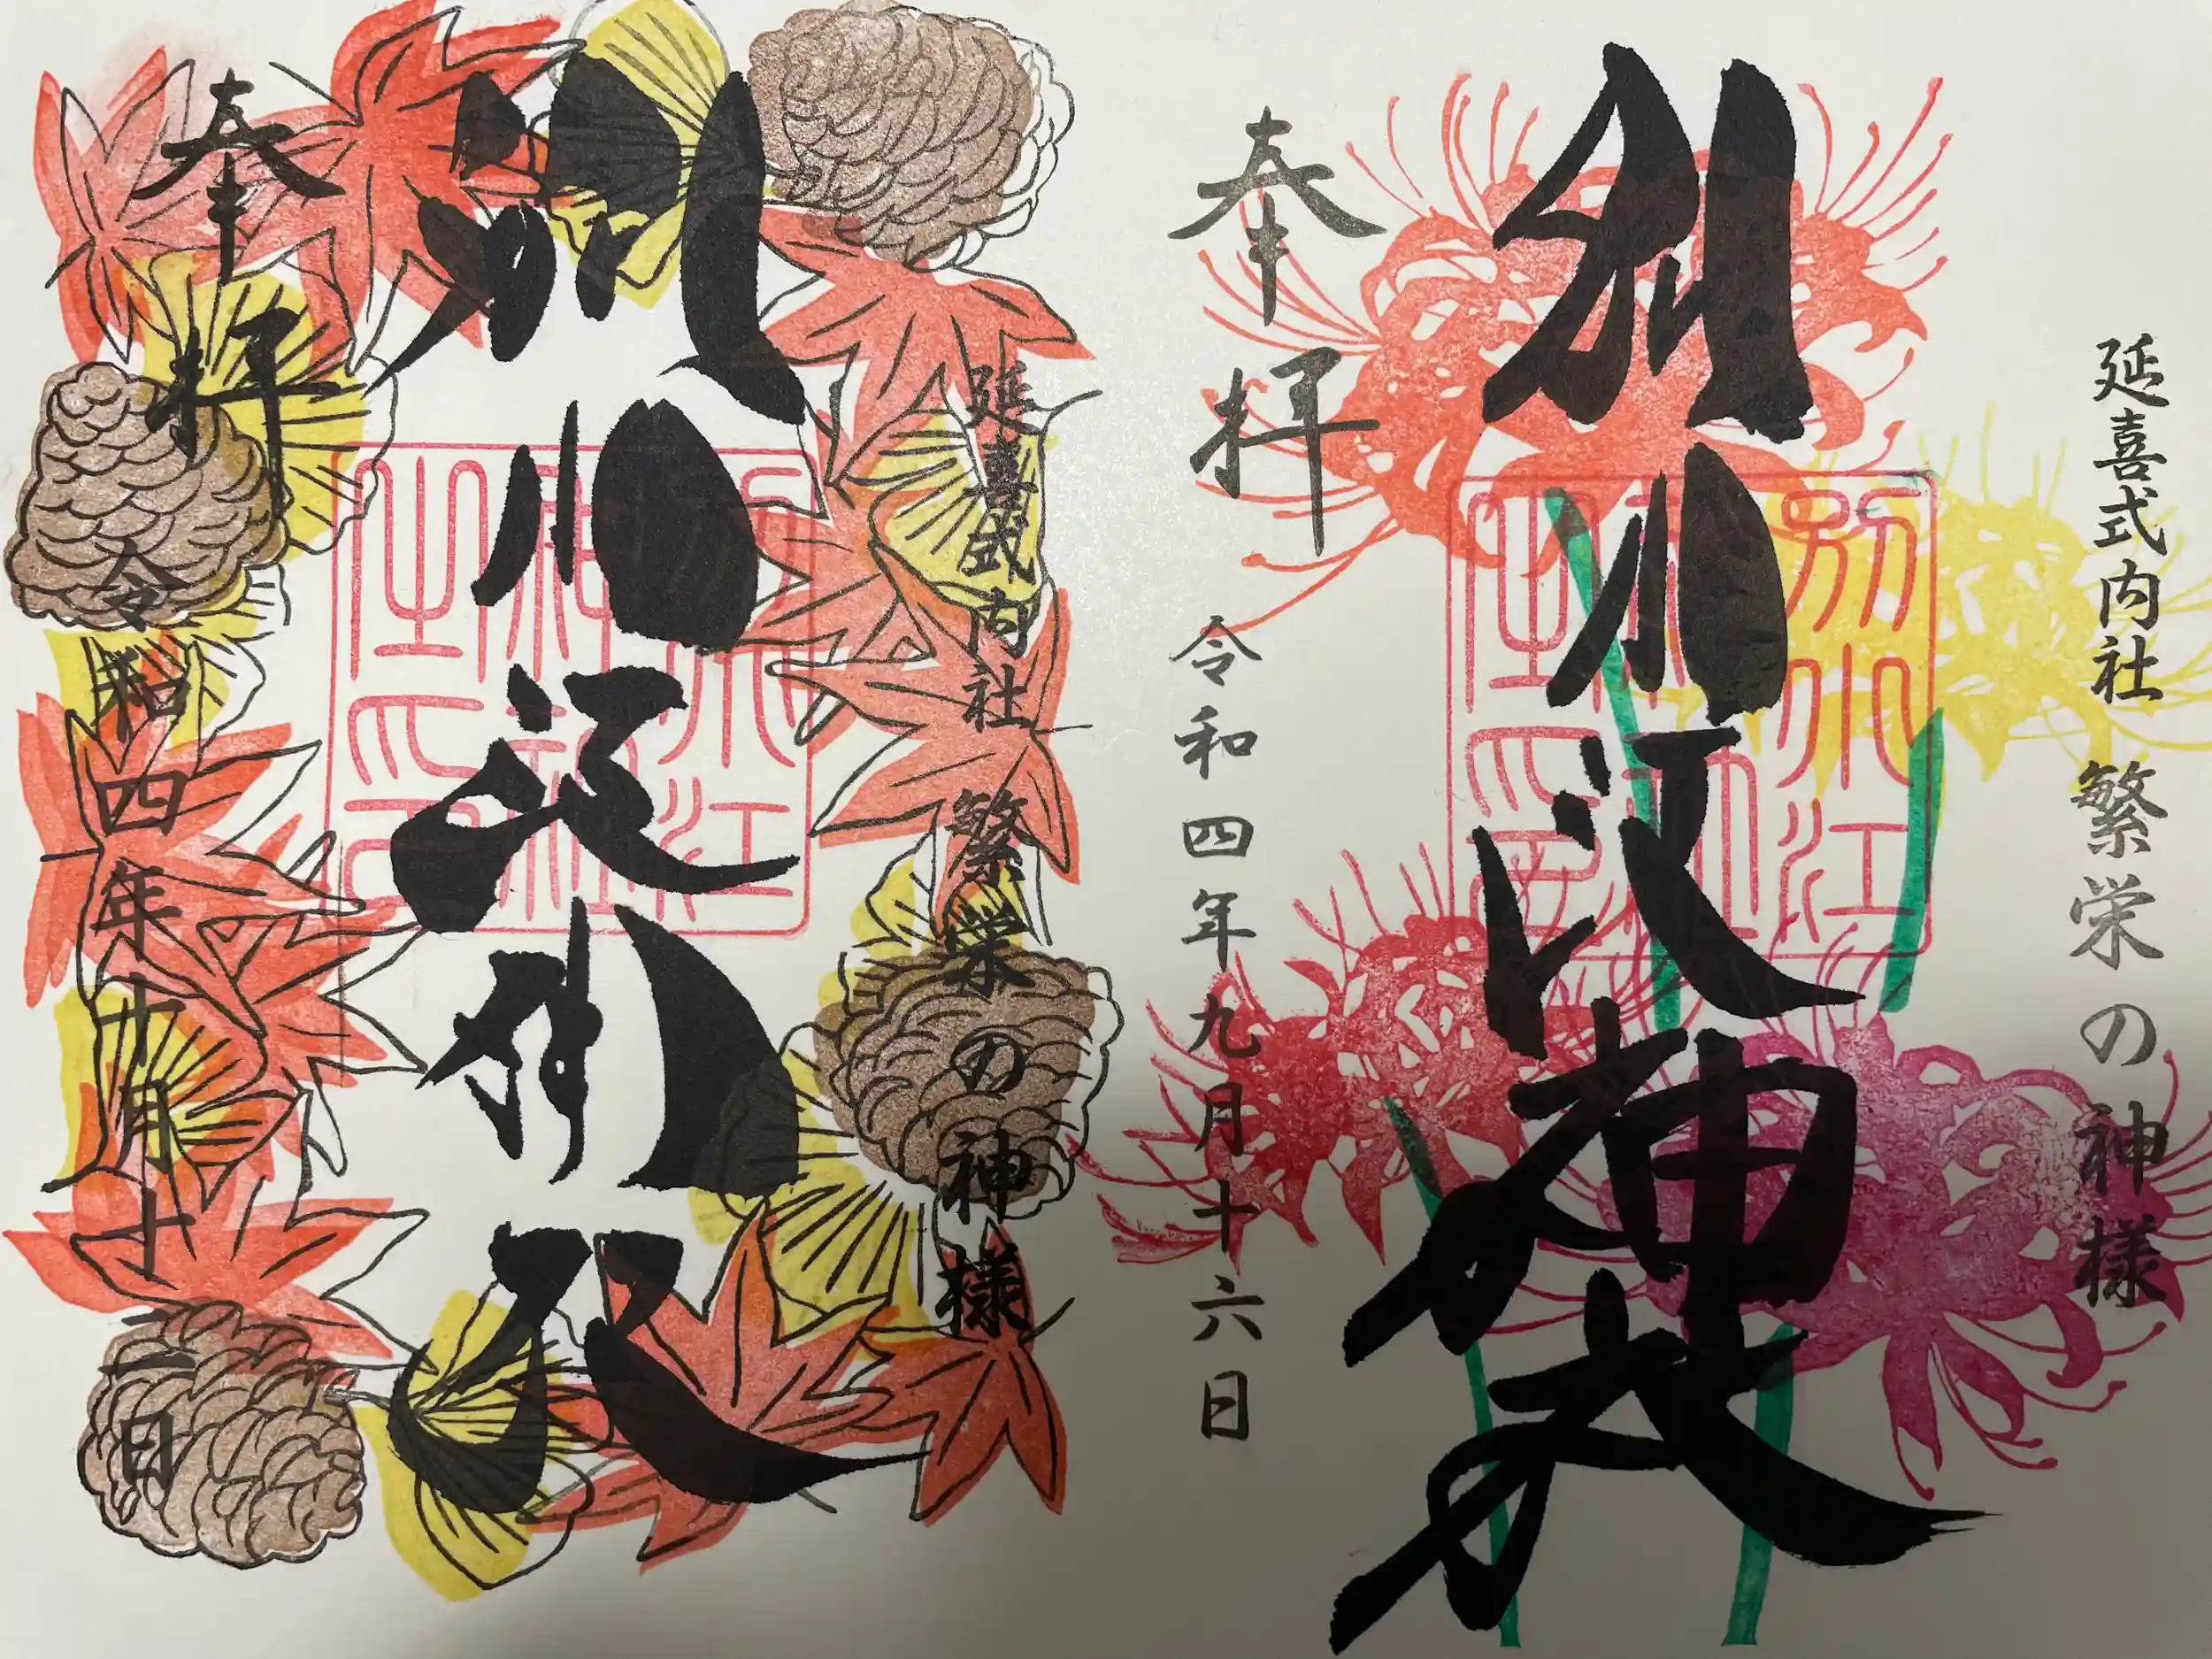 延喜式内社 繁栄の神様
別小江神社
別小江神社之印
奉拝
令和四年九月十六日
延喜式内社 繁栄の神様
別小江神社
別小江神社之印
奉拝
令和四年十月十二日